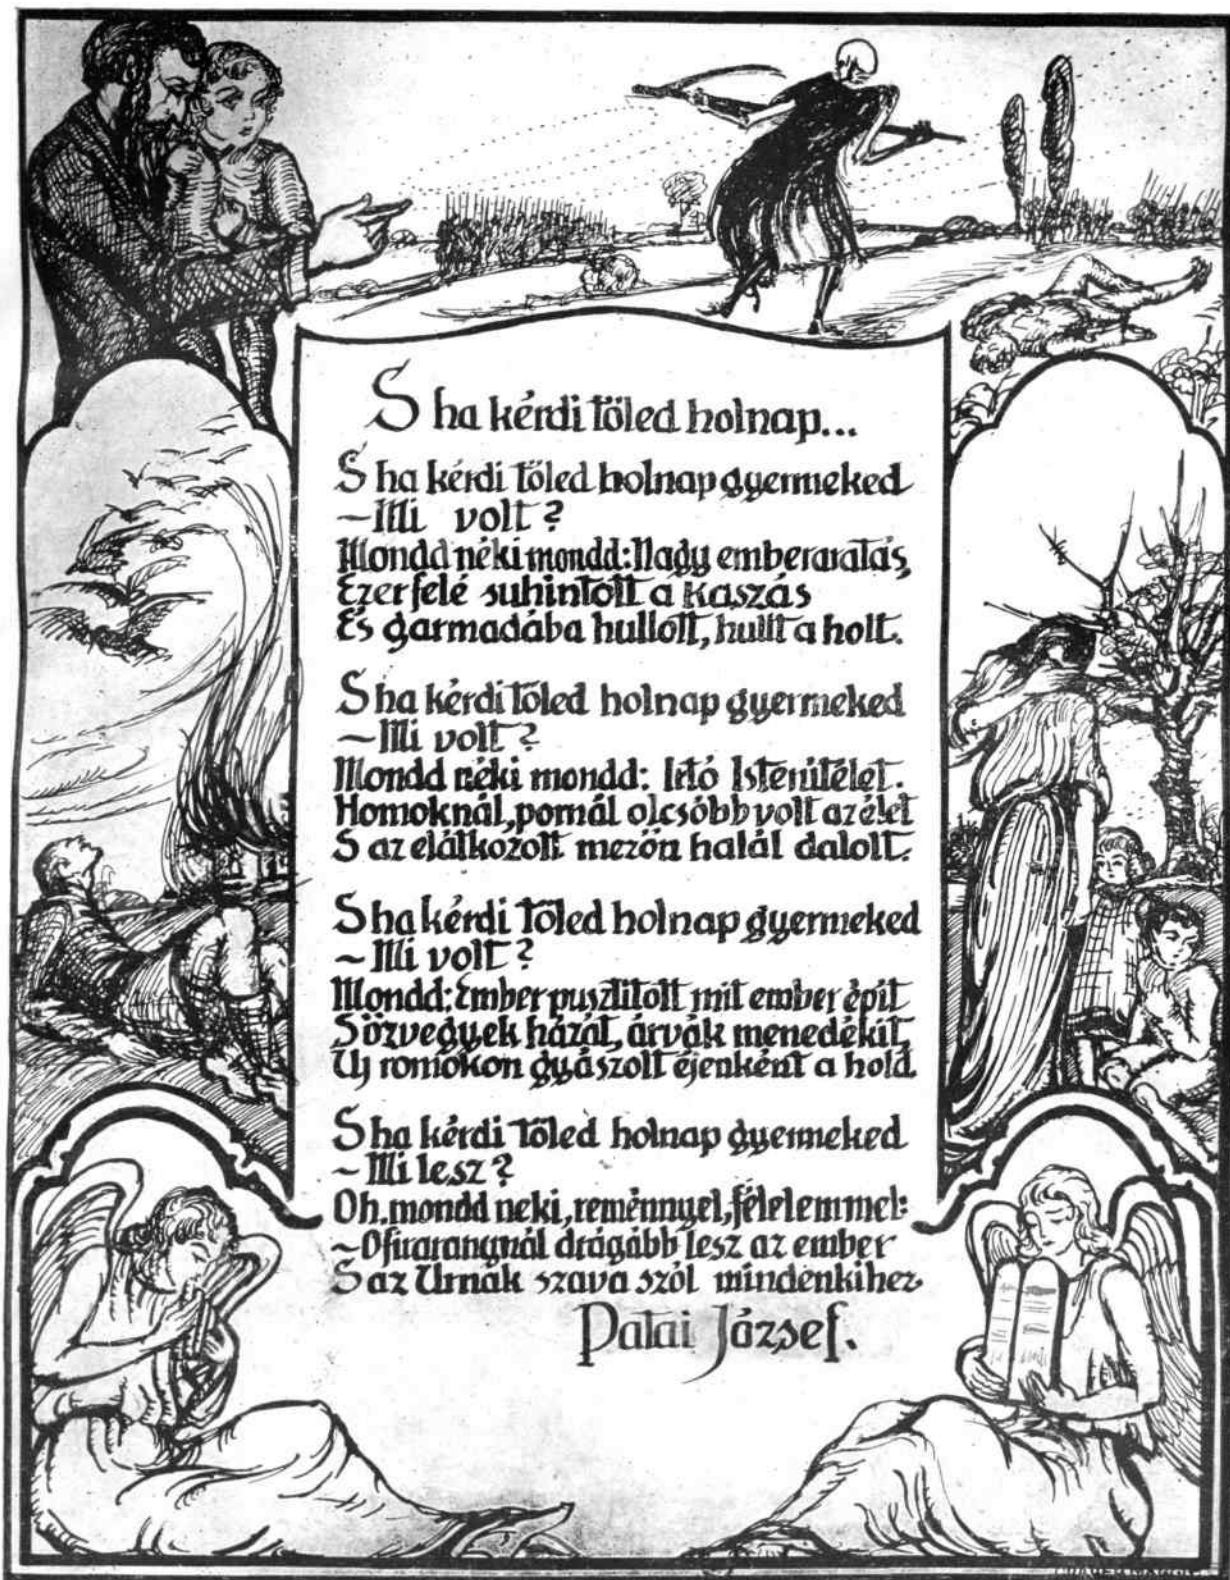 S ha kérdi tőled holnap...
S ha kérdi tőled holnap gyermeked
~Mi volt?
Mondd néki mondd: Nagy emberaratás,
Ezerfelé suhintott a kaszás
És garmadába hullott, hullt a holt.
S ha kérdi tőled holnap gyermeked
~Mi volt?
Mondd néki mondd: Irtó Istenitélet.
Homoknál, pornál olcsóbb volt az élet
S az elátkozott mezőn halál dalolt.
S ha kérdi tőled holnap gyermeked
~Mi volt?
Mondd: Ember pusztitott mit ember épit
S özvegyek házát, árvák menedékit,
Uj romokon gyászolt éjenként a hold
S ha kérdi tőled holnap gyermeked
~Mi lesz?
Oh, mondd neki, reménnyel, félelemmel:
~Ofirarangnál drágább lesz az ember
S az Urnak szava szól mindenkihez.
Patai József.